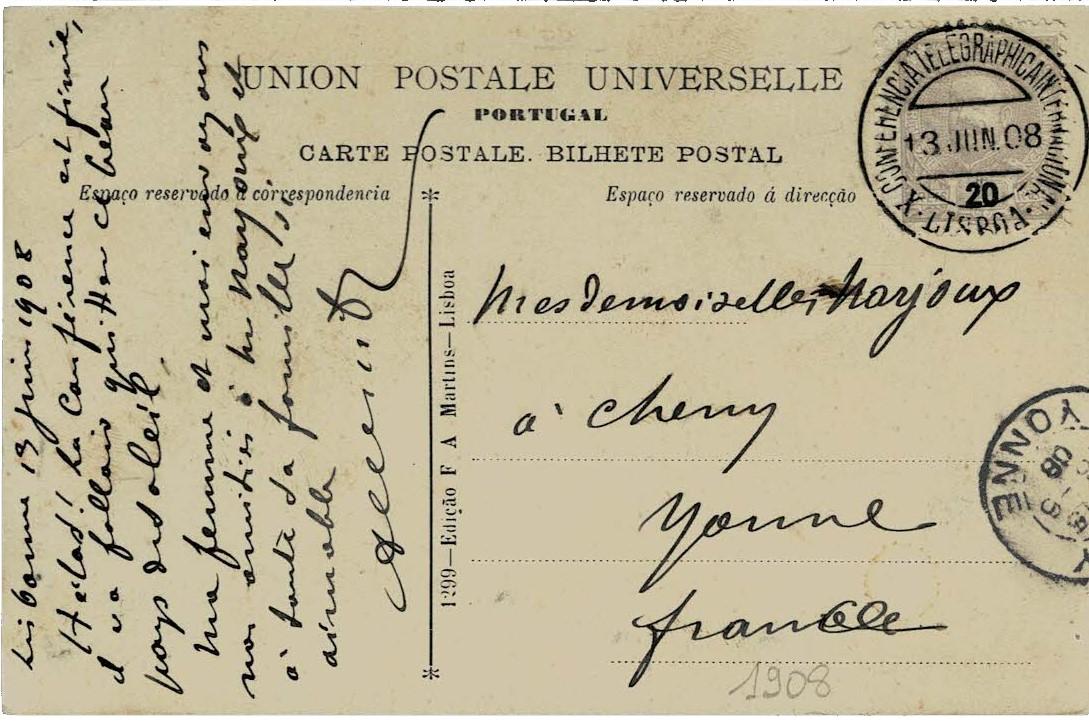 UNION POSTALE UNIVERSELLE
PORTUGAL
CARTE POSTALE. BILHETE POSTAL
Espaço reservado á correspondencia
Espaço reservado á direcção
X CONFERENCIA TELEGRAPHICA INTERNACIONAL
13 JUN.08
20
LISBOA
Lisbonne 13 juin 1908
Hélas! La Conférence est finie,
il va falloir quitter ce beau
pays du soleil.
Ma femme et moi envoyons
nos amitiés à Mr Marjoux et
à toute sa famille si
aimable
1299—Edição F A Martins—Lisboa
Mesdemoiselles Marjoux
à Cheny
Yonne
france
YONNE
08
1908